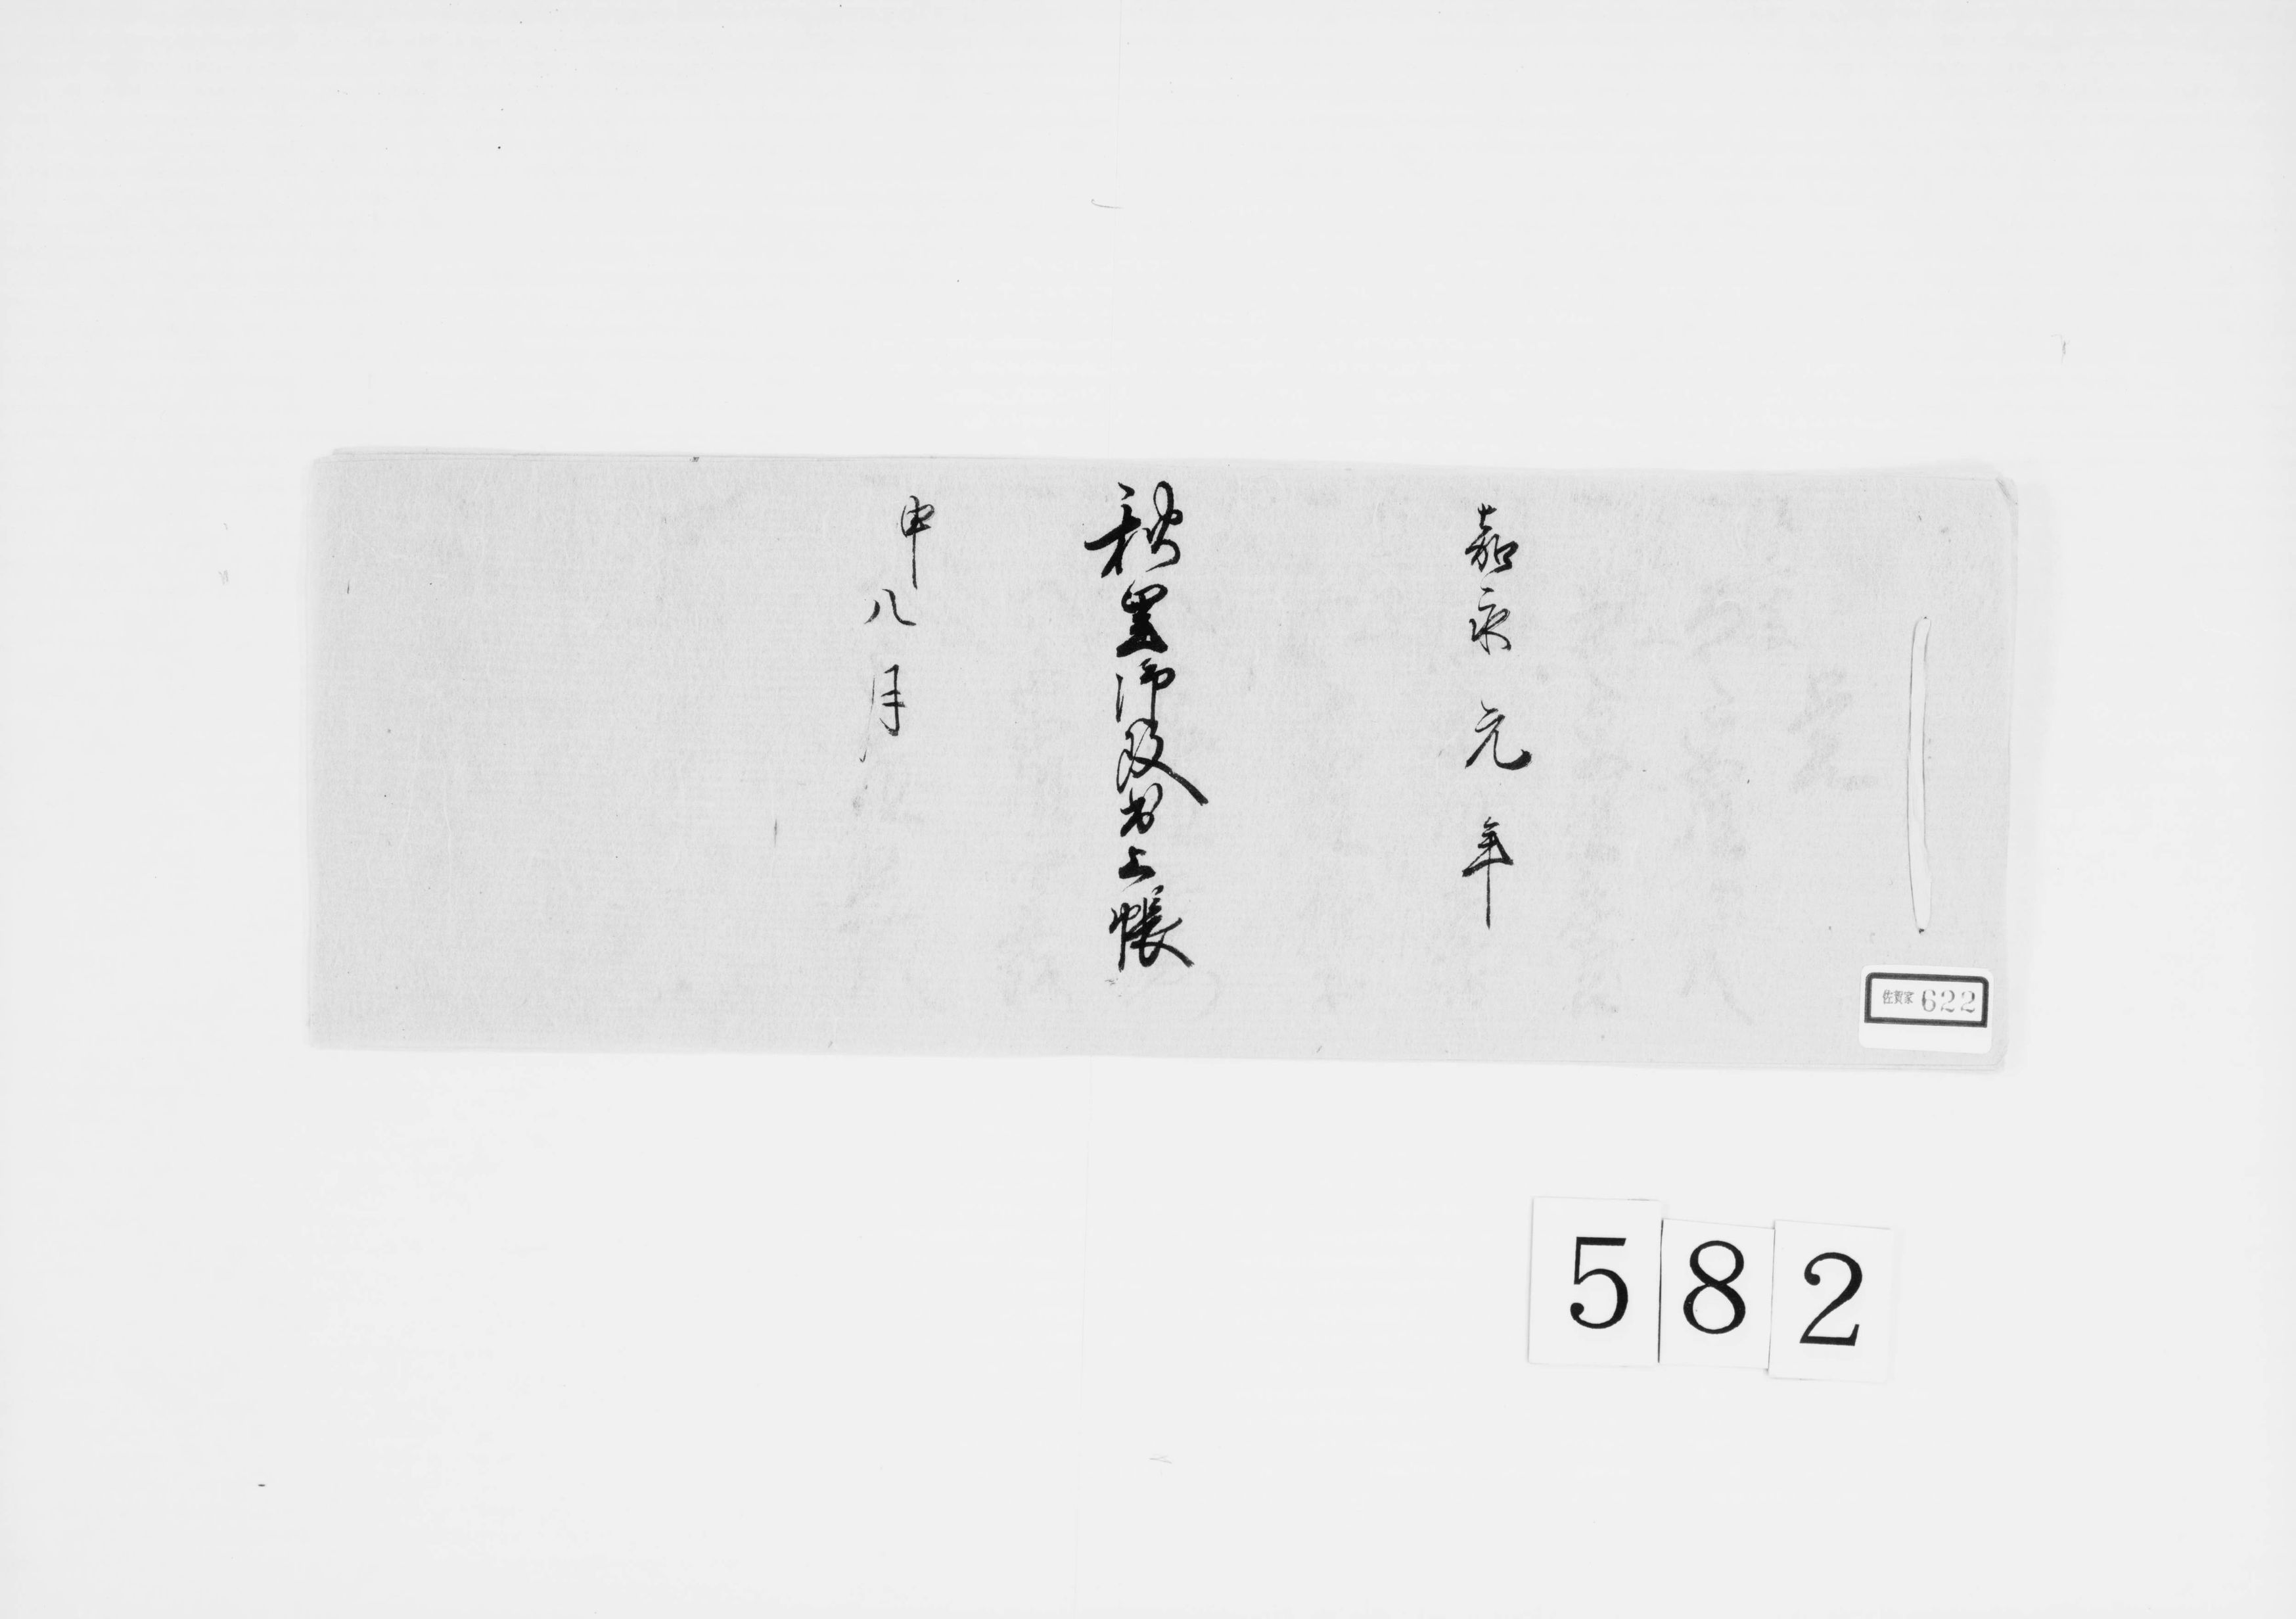 嘉永元年
秋御改書上帳
申八月
佐賀家 622
582